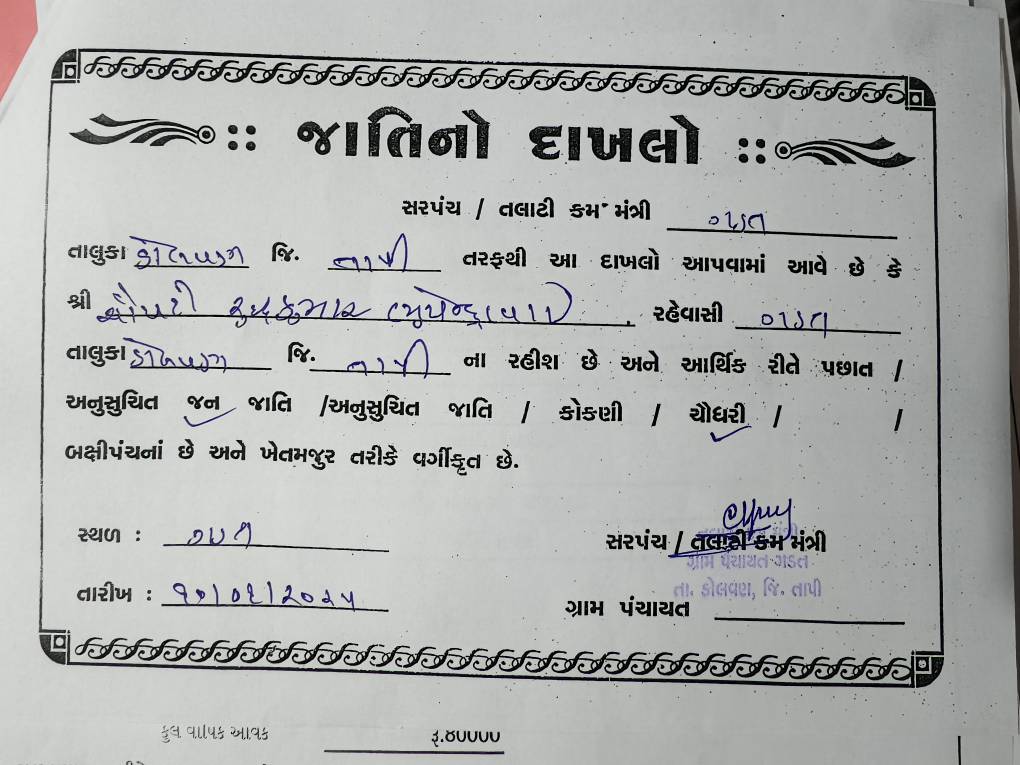 :: જાતિનો દાખલો ::
સરપંચ / તલાટી કમ મંત્રી ગડત
તાલુકા ડોલવણ જિ. તાપી તરફથી આ દાખલો આપવામાં આવે છે કે
શ્રી ચૌધરી કુમાર રહેવાસી ગડત
તાલુકા ડોલવણ જિ. તાપી ના રહીશ છે અને આર્થિક રીતે પછાત /
અનુસુચિત જન જાતિ /અનુસુચિત જાતિ / કોકણી / ચૌધરી / /
બક્ષીપંચનાં છે અને ખેતમજુર તરીકે વર્ગીકૃત છે.
સ્થળ : ગડત
સરપંચ / તલાટી કમ મંત્રી
તલાટી કમ મંત્રી
ગ્રામ પંચાયત ગડત
તા. ડોલવણ, જિ. તાપી
તારીખ :
ગ્રામ પંચાયત
કુલ વાર્ષિક આવક રૂ.૪૦૦૦૦